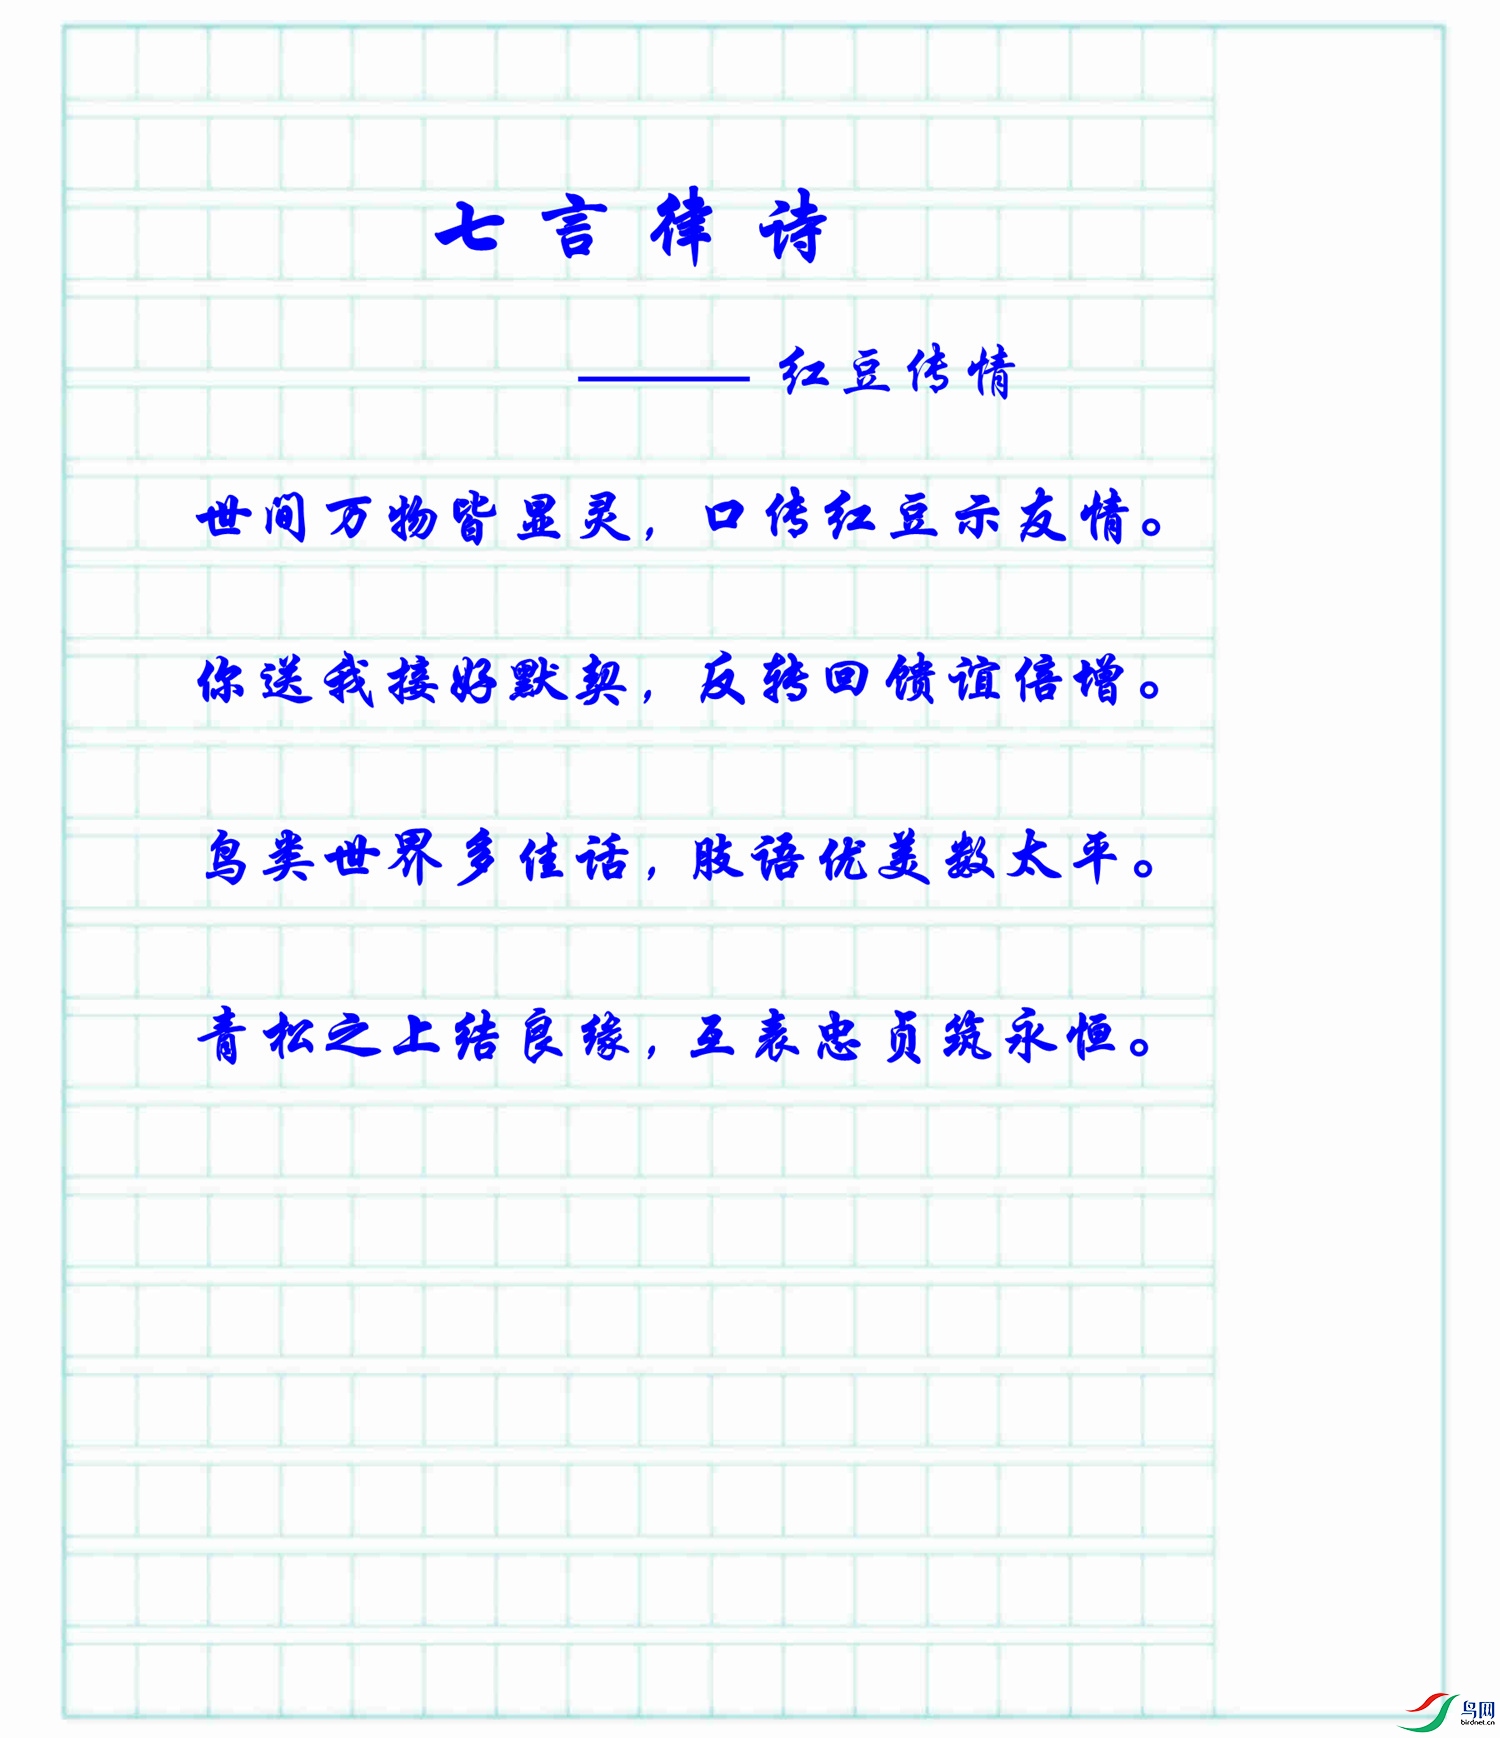 七言律诗
——— 红豆传情
世间万物皆显灵，口传红豆示友情。
你送我接好默契，反转回馈谊倍增。
鸟类世界多佳话，肢语优美数太平。
青松之上结良缘，互表忠贞筑永恒。
鸟网
birdnet.cn